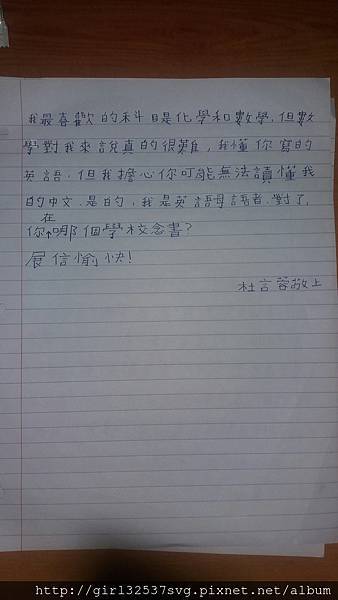 我最喜歡的科目是化學和數學,但數
學對我來說真的很難,我懂你寫的
英語.但我擔心你可能無法讀懂我
的中文.是的,我是英語母語者.對了,
在
你哪個學校念書?
展信愉快!
杜言蓉敬上
http://girl32537svg.pixnet.net/album